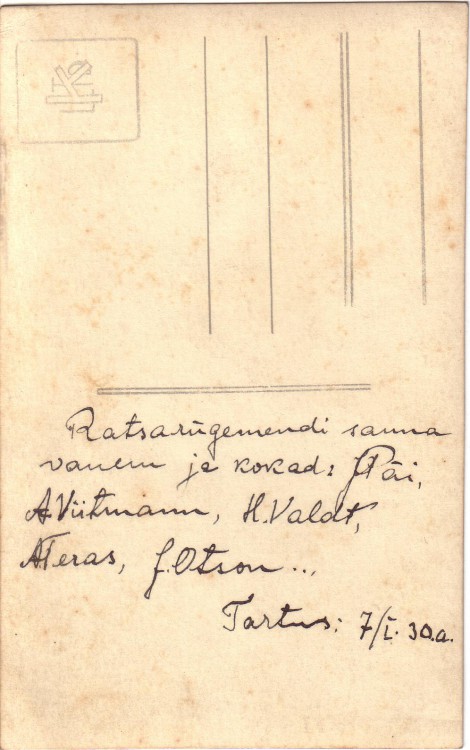 Ratsarügemendi sauna
vanem ja kokad: J. Päi,
A. Viitmann, H. Valdt,
A. Teras, J. Otson ...
Tartus: 7/I. 30.a.